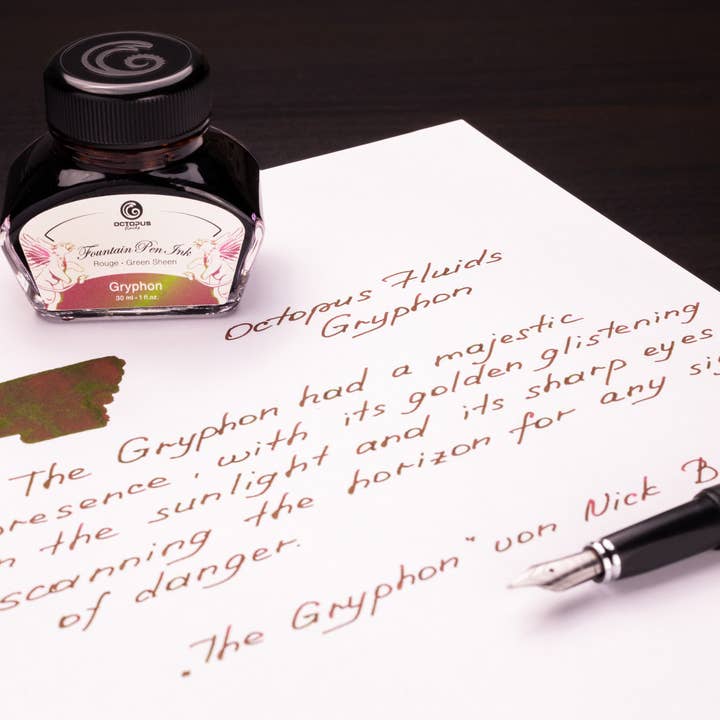 OCTOPUS
Fluids
Fountain Pen Ink
Rouge - Green Sheen
Gryphon
30 ml - 1 fl.oz.
Octopus Fluids
Gryphon
The Gryphon had a majestic
presence, with its golden glistening
in the sunlight and its sharp eyes
scanning the horizon for any
of danger.
"The Gryphon" von Nick